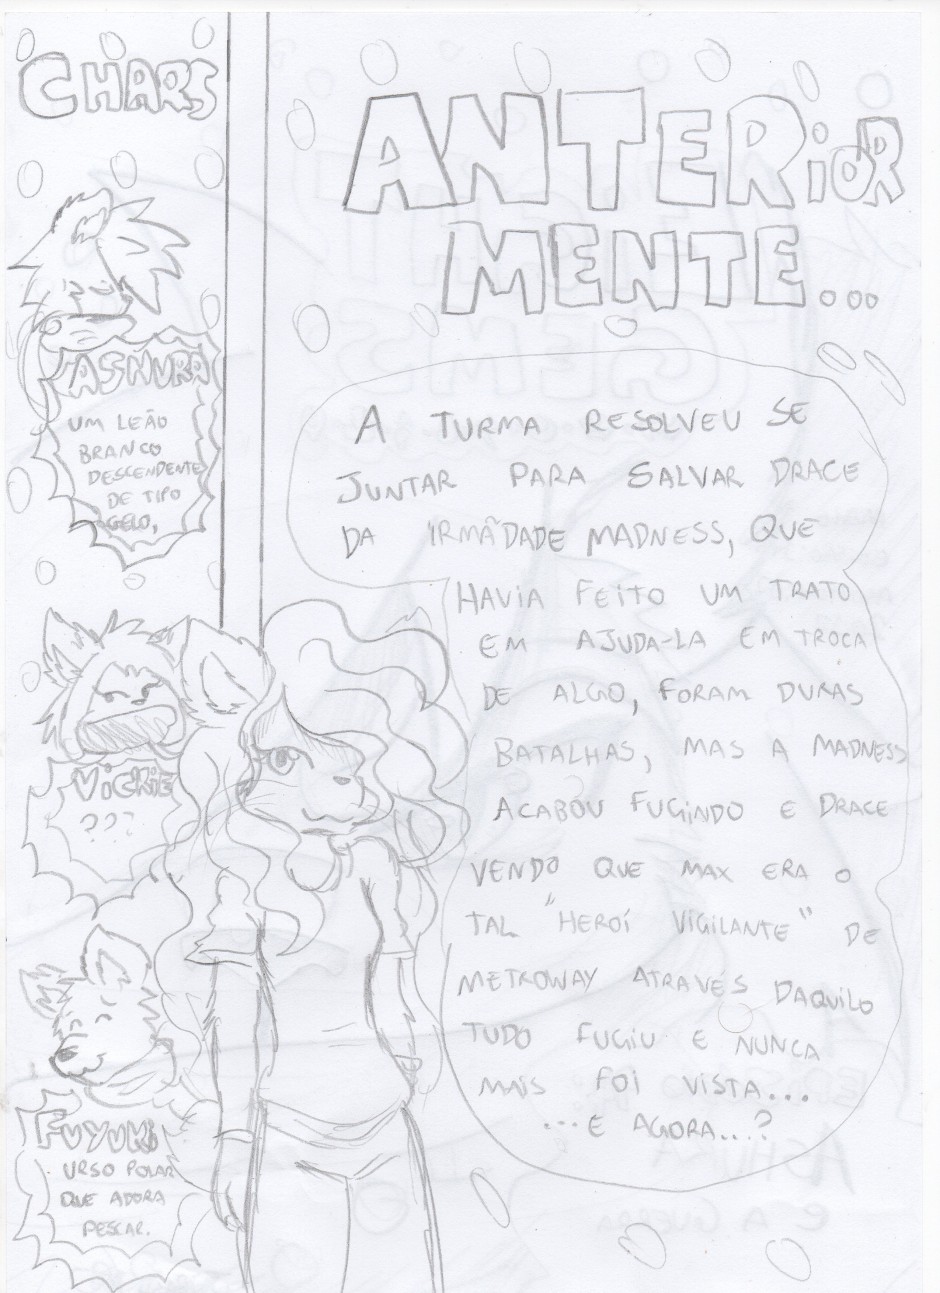 CHARS
ASHURA
UM LEÃO
BRANCO
DESCENDENTE
DE TIPO
GELO,
VICKIE
???
FUYUKI
URSO POLAR
QUE ADORA
PESCAR.
ANTERiOR
MENTE...
A TURMA RESOLVEU SE
JUNTAR PARA SALVAR DRACE
DA IRMÃDADE MADNESS, QUE
HAVIA FEITO UM TRATO
EM AJUDA-LA EM TROCA
DE ALGO, FORAM DURAS
BATALHAS, MAS A MADNESS
ACABOU FUGINDO E DRACE
VENDO QUE MAX ERA O
TAL "HEROÍ VIGILANTE" DE
METROWAY ATRAVÉS DAQUILO
TUDO FUGIU E NUNCA
MAIS FOI VISTA...
...E AGORA...?